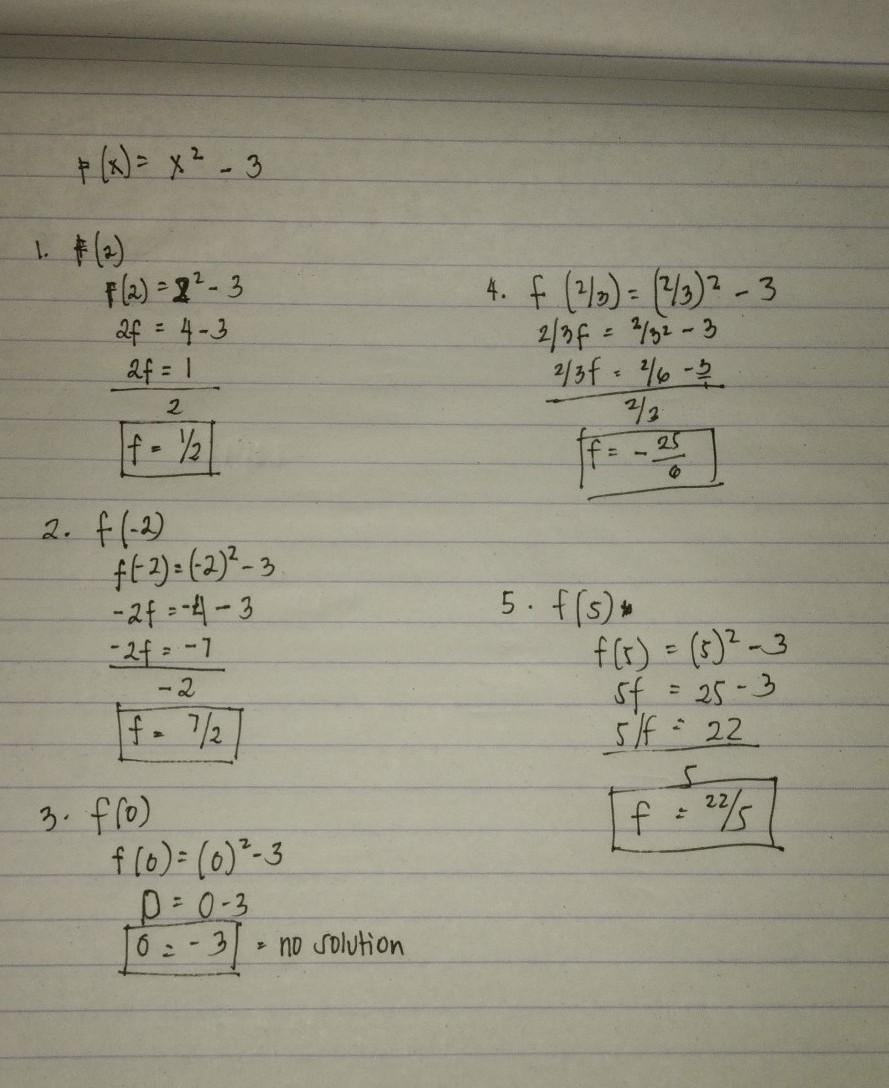 F(x) = x² - 3
1. F(2)
F(2) = 2² - 3
2f = 4 - 3
2f = 1
2
f = 1/2
2. f(-2)
f(-2) = (-2)² - 3
-2f = -4 - 3
-2f = -7
-2
f = 7/2
3. f(0)
f(0) = (0)² - 3
0 = 0 - 3
0 = -3 = no solution
4. f (2/3) = (2/3)² - 3
2/3f = 2/3² - 3
2/3f = 2/6 - 3/1
2/3
f = - 25/6
5. f(5)
f(5) = (5)² - 3
5f = 25 - 3
5f = 22
5
f = 22/5